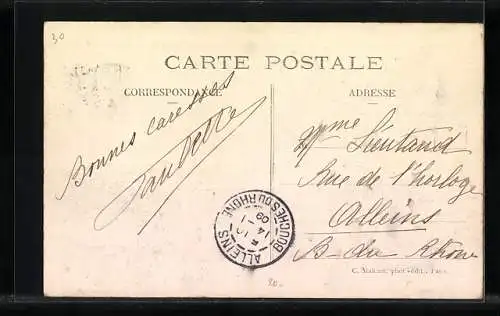 30
CARTE POSTALE
CORRESPONDANCE
ADRESSE
Bonnes caresses
Mme Lieutaud
Rue de l'horloge
Alleins
B- du Rhône
ALLEINS
BOUCHES DU RHONE
14
09